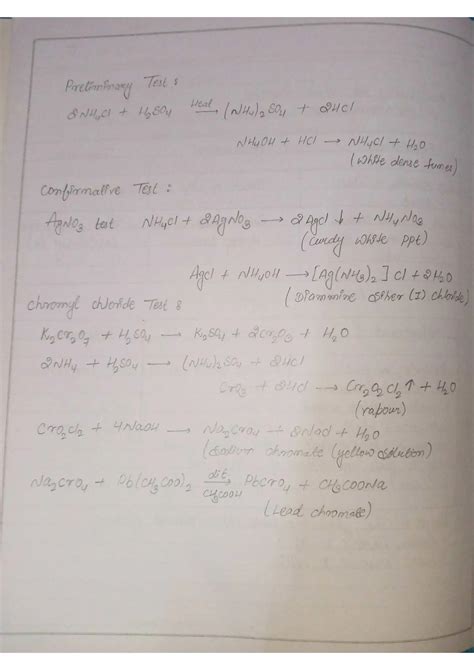 Preliminary Test :
2NH4Cl + H2SO4 Heat → (NH4)2SO4 + 2HCl
NH4OH + HCl → NH4Cl + H2O
(White dense fumes)
Confirmative Test :
AgNO3 test NH4Cl + 2AgNO3 → 2AgCl ↓ + NH4NO3
(Curdy white ppt)
AgCl + NH4OH → [Ag(NH3)2] Cl + 2H2O
(Diammine silver (I) chloride)
Chromyl chloride Test :
K2Cr2O7 + H2SO4 → K2SO4 + 2CrO3 + H2O
2NH4 + H2SO4 → (NH4)2SO4 + 2HCl
CrO3 + 2HCl → Cr2O2Cl2 ↑ + H2O
(vapour)
CrO2Cl2 + 4NaOH → Na2CrO4 + 2NaCl + H2O
(Sodium chromate (yellow solution)
Na2CrO4 + Pb(CH3COO)2 dil. CH3COOH → PbCrO4 + CH3COONa
(Lead chromate)